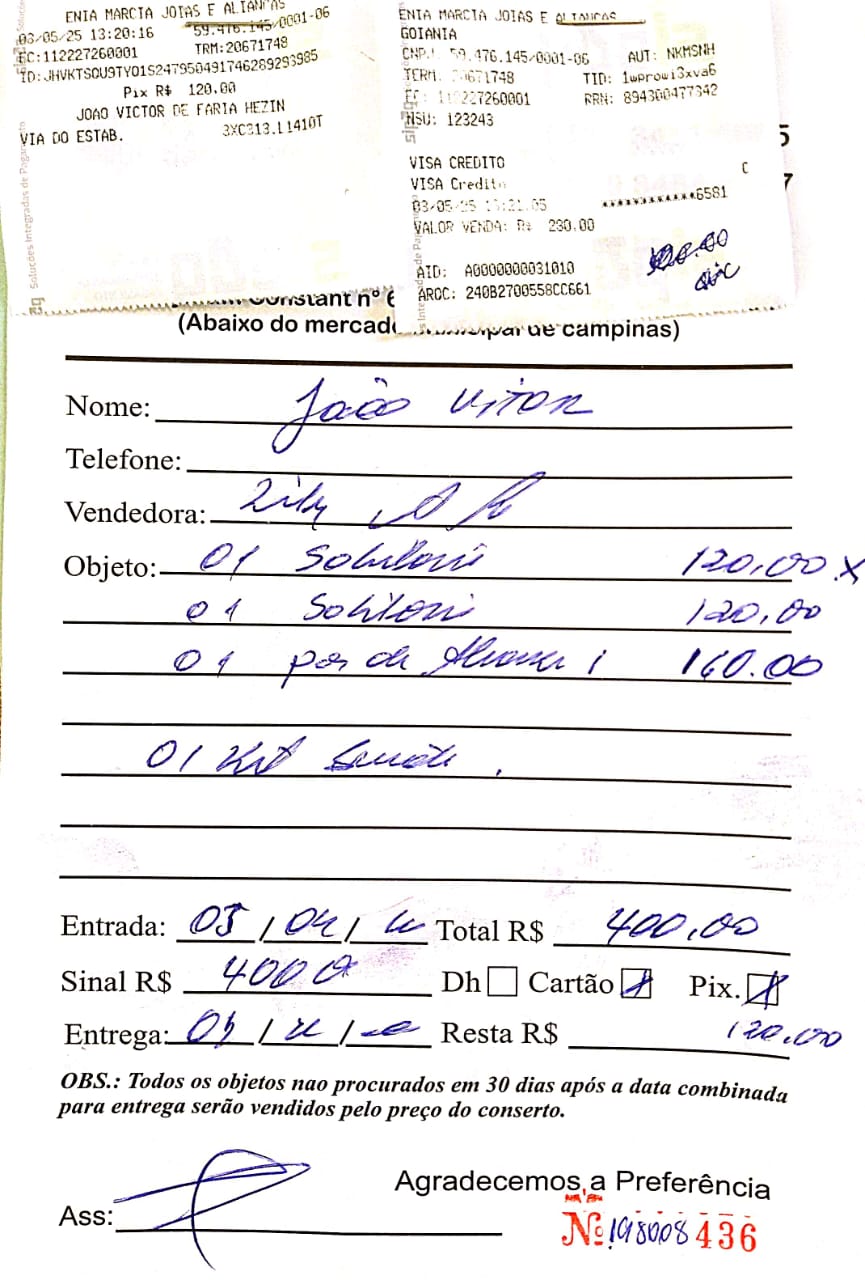 ENIA MARCIA JOIAS E ALIANCAS
59.476.145/0001-06
03/05/25 13:20:16
EC:112227260001 TRM:20671748
ID:JHVKTSOU9TYO1S247950491746289293985
Pix R$ 120.00
JOAO VICTOR DE FARIA HEZIN
VIA DO ESTAB. 3XC313.11410T
Soluções Integradas de Pagam
ENIA MARCIA JOIAS E ALIANCAS
GOIANIA
CNPJ: 59.476.145/0001-06 AUT: NKMSNH
TERM: 20671748 TID: 1wprowi3xva6
EC: 112227260001 RRN: 894300477342
NSU: 123243
VISA CREDITO
C
VISA Credito
************6581
03/05/25 13:21:05
VALOR VENDA: R$ 230.00
AID: A0000000031010
ARQC: 240B2700558CC661
Constant nº 6
(Abaixo do mercado municipal de campinas)
Nome: João Vitor
Telefone:
Vendedora:
Objeto: 01 Solitario 120,00 x
01 Solitario 120,00
01 par de Aliança 160.00
01 Kit
Entrada: Total R$ 400,00
Sinal R$ 400 Dh Cartão Pix.
Entrega: Resta R$ 120,00
OBS.: Todos os objetos nao procurados em 30 dias após a data combinada
para entrega serão vendidos pelo preço do conserto.
Agradecemos a Preferência
Ass:
Nº 198008 436